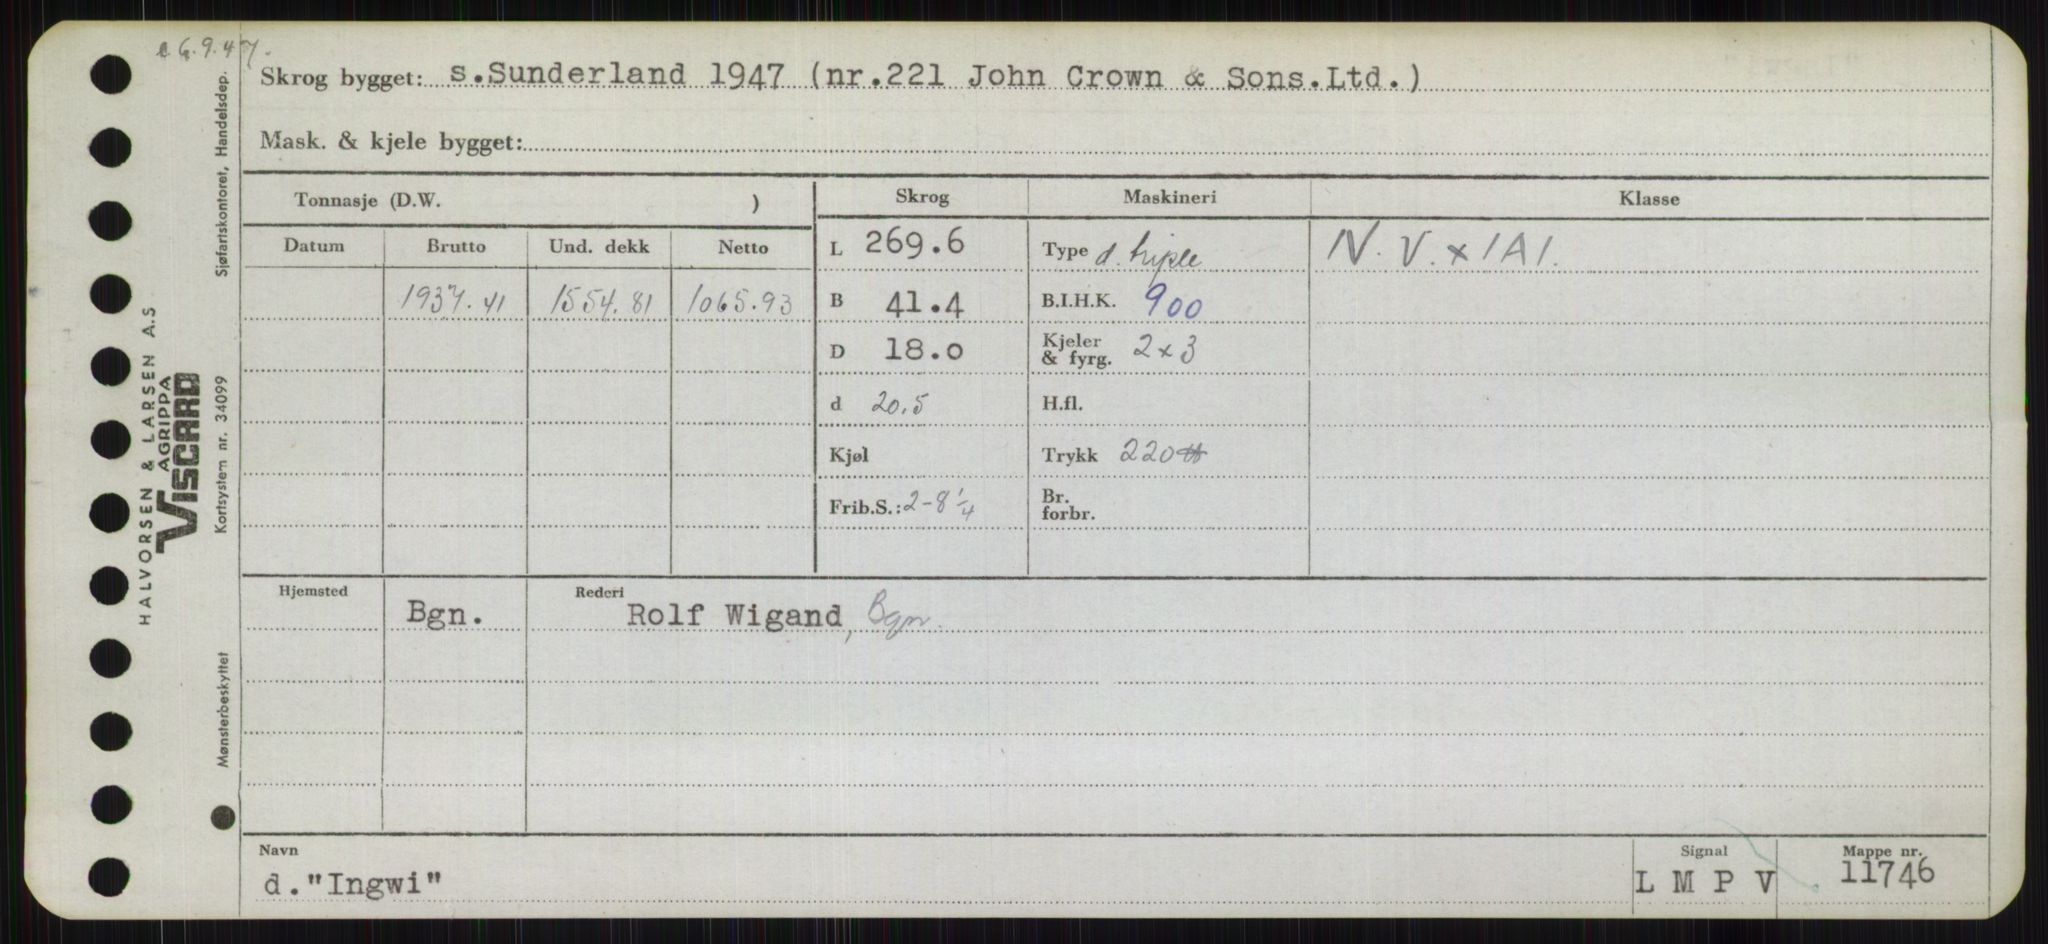 6.9.47.
Skrog bygget: s.Sunderland 1947 (nr.221 John Crown & Sons.Ltd.)
Mask. & kjele bygget:
Tonnasje (D.W. )
Skrog Maskineri Klasse
Datum Brutto Und. dekk Netto
L 269.6 Type d. triple N. V. x 1A1.
1937.41 1554.81 1065.93 B 41.4 B.I.H.K. 900
D 18.0 Kjeler & fyrg. 2x3
d 20.5 H.fl.
Kjøl Trykk 220 #
Frib.S.: 2-8 1/4 Br. forbr.
Hjemsted Rederi
Bgn. Rolf Wigand, Bgn.
Navn Signal Mappe nr.
d."Ingwi" L M P V 11746
HALVORSEN & LARSEN A.S
AGRIPPA
VISCARD
Mønsterbeskyttet Kortsystem nr. 34099 Sjøfartskontoret, Handelsdep.